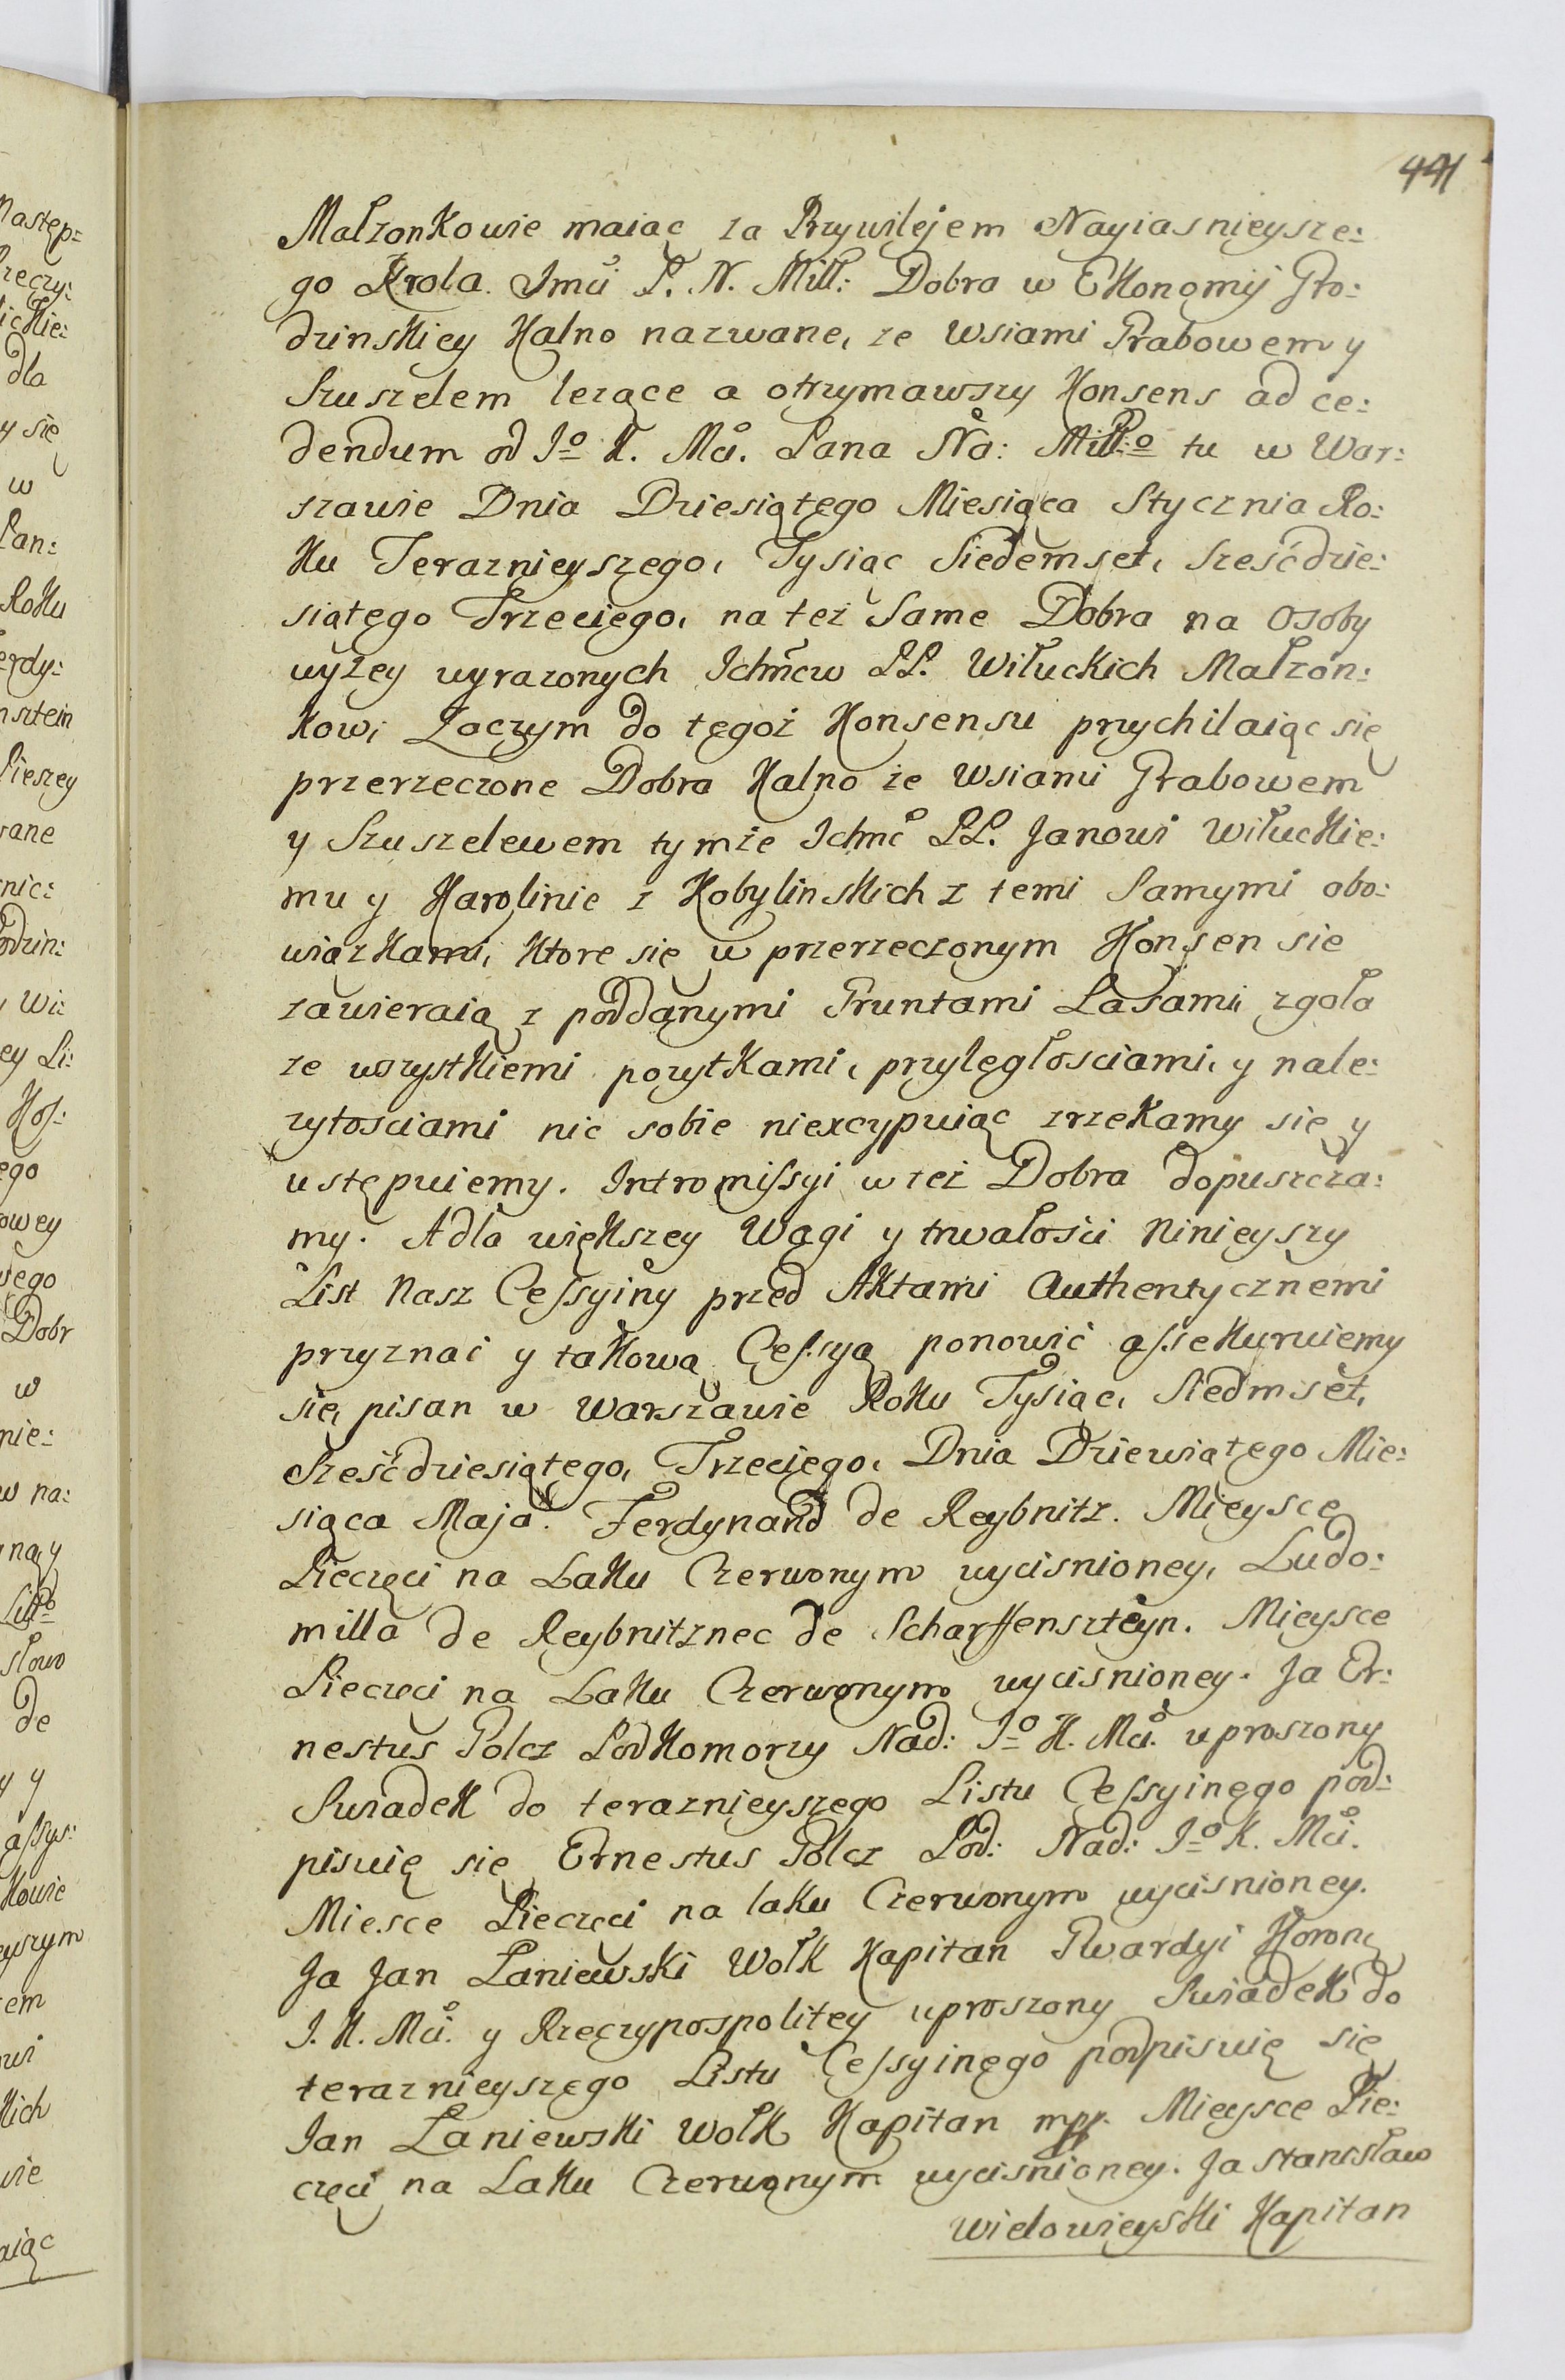 441
Małzonkowie maiąc za Przywilejem Nayiasnieysze:
go Krola Jmći P. N. Mill: Dobra w Ekonomij Gro:
dzinskiey Kalno nazwane, ze Wsiami Grabowem y
Szuszelem lezące a otrzymawszy Konsens ad ce:
dendum od Jo K. Mći. Pana Na: Millo tu w War:
szawie Dnia Dziesiątego Miesiąca Stycznia Ro:
ku Teraznieyszego, Tysiąc Siedemset, Sześćdzie:
siątego Trzeciego, na też Same Dobra na Osoby
wyżey wyrazonych Ichmćw PP. Wiłuckich Małzon:
kow; Zaczym do tegoż Konsensu przychilaiąc się
przerzeczone Dobra Kalno że Wsiami Grabowem
y Szuszelewem tymże Ichmć PP. Janowi Wiłuckie:
mu y Karolinie z Kobylinskich z temi Samymi obo:
wiązkami, ktore się w przerzeczonym Konsensie
zawieraią z poddanymi Gruntami Lasami zgoła
ze wszystkiemi pozytkami, przyległosciami, y nale:
zytosciami nic sobie niexcypuiąc zrzekamy się y
ustępuiemy. Intromissyi w też Dobra dopuszcza:
my. Adla większey Wagi y trwałości Ninieyszy
List Nasz Cessyiny przed Aktami Authentycznemi
przyznać y takową Cessyą ponowić assekuruiemy
się, pisan w Warszawie Roku Tysiąc, Siedmset,
Sześćdziesiątego, Trzeciego, Dnia Dziewiątego Mie:
siąca Maja. Ferdynand de Reybnitz. Mieysce
Pieczęci na Laku Czerwonym wycisnioney, Ludo:
milla de Reybnitznec de Scharffenszteyn. Mieysce
Pieczęci na Laku Czerwonym wycisnioney. Ja Er:
nestus Golcz Podkomorzy Nad: Jo K. Mći. uproszony
Swiadek do teraznieyszego Listu Cessyinego pod:
pisuię się Ernestus Golcz Pod: Nad: Jo K. Mći.
Miesce Pieczęci na laku Czerwonym wycisnioney.
Ja Jan Laniewski Wołk Kapitan Gwardyi Koronę
J. K. Mći. y Rzeczypospolitey uproszony Swiadek do
teraznieyszego Listu Cessyinego podpisuię się
Jan Laniewski Wolk Kapitan mpp. Mieysce Pie:
częci na Laku Czerwonym wycisnioney. Ja Stanisław
Wielowieyski Kapitan